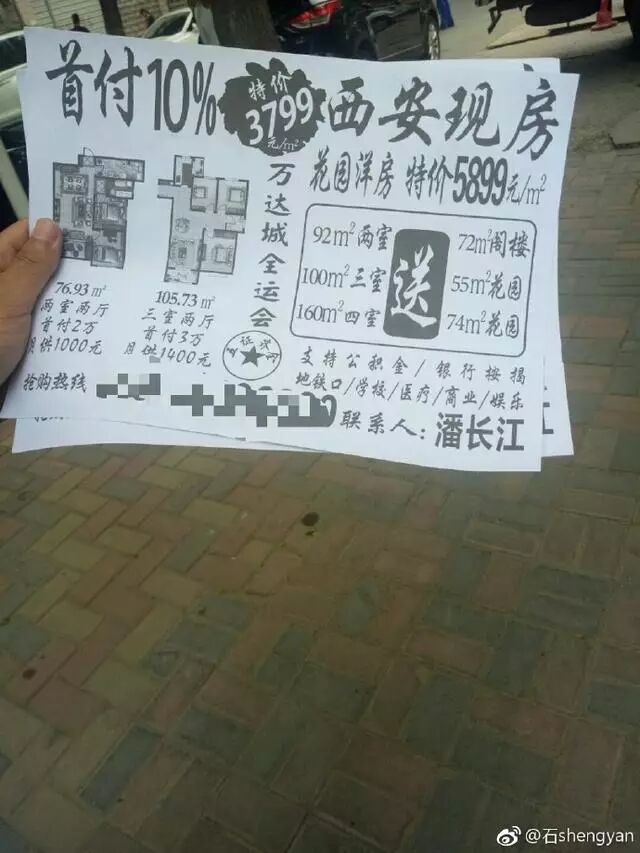 首付10%
特价
3799
元/m²
西安现房
花园洋房 特价5899元/m²
万达城全运会
76.93m²
两室两厅
首付2万
月供1000元
105.73m²
三室两厅
首付3万
月供1400元
92m²两室
100m²三室
160m²四室
送
72m²阁楼
55m²花园
74m²花园
支持公积金/银行按揭
地铁口/学校/医疗/商业/娱乐
抢购热线
联系人:潘长江
@石shengyan